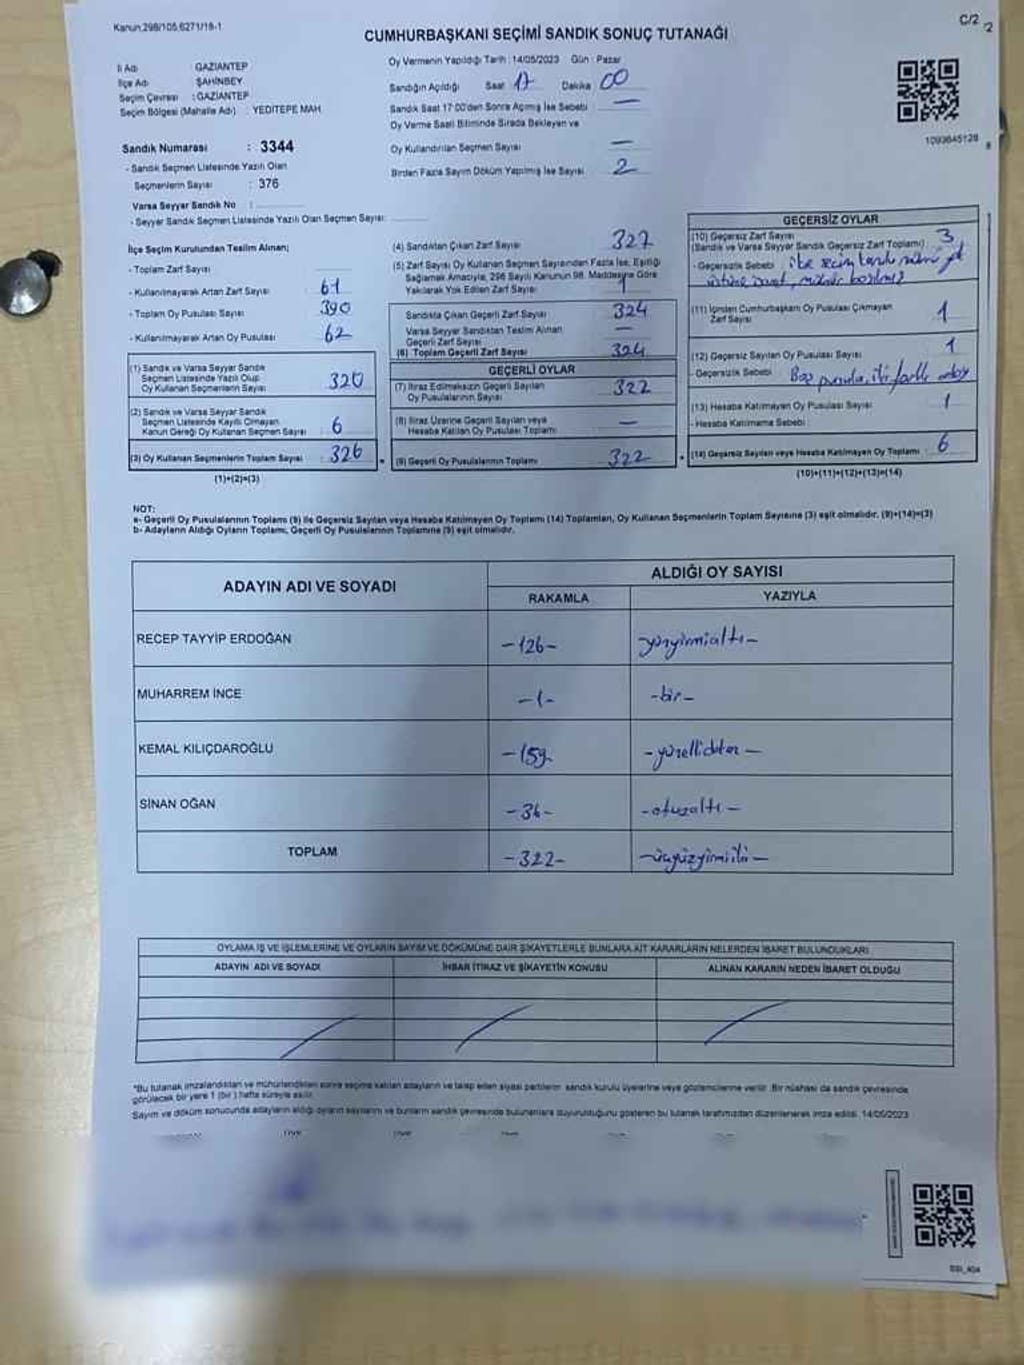 Kanun,298/105,6271/18-1
C/2
2
CUMHURBAŞKANI SEÇİMİ SANDIK SONUÇ TUTANAĞI
İl Adı GAZİANTEP
İlçe Adı ŞAHİNBEY
Seçim Çevresi : GAZİANTEP
Seçim Bölgesi (Mahalle Adı) : YEDİTEPE MAH.
Oy Vermenin Yapıldığı Tarih : 14/05/2023 Gün : Pazar
Sandığın Açıldığı Saat 17 Dakika 00
Sandık Saat 17:00'den Sonra Açılmış İse Sebebi —
Oy Verme Saati Bitiminde Sırada Bekleyen ve
Oy Kullandırılan Seçmen Sayısı —
Birden Fazla Sayım Döküm Yapılmış İse Sayısı 2
1093645128
Sandık Numarası : 3344
- Sandık Seçmen Listesinde Yazılı Olan
Seçmenlerin Sayısı : 376
Varsa Seyyar Sandık No :
- Seyyar Sandık Seçmen Listesinde Yazılı Olan Seçmen Sayısı:
İlçe Seçim Kurulundan Teslim Alınan;
- Toplam Zarf Sayısı
- Kullanılmayarak Artan Zarf Sayısı 61
- Toplam Oy Pusulası Sayısı 390
- Kullanılmayarak Artan Oy Pusulası 62
(1) Sandık ve Varsa Seyyar Sandık
Seçmen Listesinde Yazılı Olup
Oy Kullanan Seçmenlerin Sayısı 320
(2) Sandık ve Varsa Seyyar Sandık
Seçmen Listesinde Kayıtlı Olmayan
Kanun Gereği Oy Kullanan Seçmen Sayısı 6
(3) Oy Kullanan Seçmenlerin Toplam Sayısı 326
(1)+(2)=(3)
(4) Sandıktan Çıkan Zarf Sayısı 327
(5) Zarf Sayısı Oy Kullanan Seçmen Sayısından Fazla İse, Eşitliği
Sağlamak Amacıyla, 298 Sayılı Kanunun 98. Maddesine Göre
Yakılarak Yok Edilen Zarf Sayısı 1
Sandıkta Çıkan Geçerli Zarf Sayısı 324
Varsa Seyyar Sandıktan Teslim Alınan
Geçerli Zarf Sayısı —
(6) Toplam Geçerli Zarf Sayısı 324
GEÇERLİ OYLAR
(7) İtiraz Edilmeksizin Geçerli Sayılan
Oy Pusulalarının Sayısı 322
(8) İtiraz Üzerine Geçerli Sayılan veya
Hesaba Katılan Oy Pusulası Toplamı —
(9) Geçerli Oy Pusulalarının Toplamı 322
GEÇERSİZ OYLAR
(10) Geçersiz Zarf Sayısı 3
(Sandık ve Varsa Seyyar Sandık Geçersiz Zarf Toplamı)
- Geçersizlik Sebebi
(11) İçinden Cumhurbaşkanı Oy Pusulası Çıkmayan
Zarf Sayısı 1
(12) Geçersiz Sayılan Oy Pusulası Sayısı 1
- Geçersizlik Sebebi : Boş pusula, iki farklı aday
(13) Hesaba Katılmayan Oy Pusulası Sayısı 1
- Hesaba Katılmama Sebebi
(14) Geçersiz Sayılan veya Hesaba Katılmayan Oy Toplamı 6
(10)+(11)+(12)+(13)=(14)
NOT:
a- Geçerli Oy Pusulalarının Toplamı (9) ile Geçersiz Sayılan veya Hesaba Katılmayan Oy Toplamı (14) Toplamları, Oy Kullanan Seçmenlerin Toplam Sayısına (3) eşit olmalıdır. (9)+(14)=(3)
b- Adayların Aldığı Oyların Toplamı, Geçerli Oy Pusulalarının Toplamına (9) eşit olmalıdır.
ADAYIN ADI VE SOYADI ALDIĞI OY SAYISI
RAKAMLA YAZIYLA
RECEP TAYYİP ERDOĞAN -126- yüzyirmialtı-
MUHARREM İNCE -1- -bir-
KEMAL KILIÇDAROĞLU -159- -yüzellidokuz-
SİNAN OĞAN -36- -otuzaltı-
TOPLAM -322- -üçyüzyirmiiki-
OYLAMA İŞ VE İŞLEMLERİNE VE OYLARIN SAYIM VE DÖKÜMÜNE DAİR ŞİKAYETLERLE BUNLARA AİT KARARLARIN NELERDEN İBARET BULUNDUKLARI
ADAYIN ADI VE SOYADI İHBAR İTİRAZ VE ŞİKAYETİN KONUSU ALINAN KARARIN NEDEN İBARET OLDUĞU
*Bu tutanak imzalandıktan ve mühürlendikten sonra seçime katılan adayların ve talep eden siyasi partilerin sandık kurulu üyelerine veya gözlemcilerine verilir. Bir nüshası da sandık çevresinde
görülecek bir yere 1 (bir) hafta süreyle asılır.
Sayım ve döküm sonucunda adayların aldığı oyların sayılarını ve bunların sandık çevresinde bulunanlara duyurulduğunu gösteren bu tutanak tarafımızdan düzenlenerek imza edildi. 14/05/2023